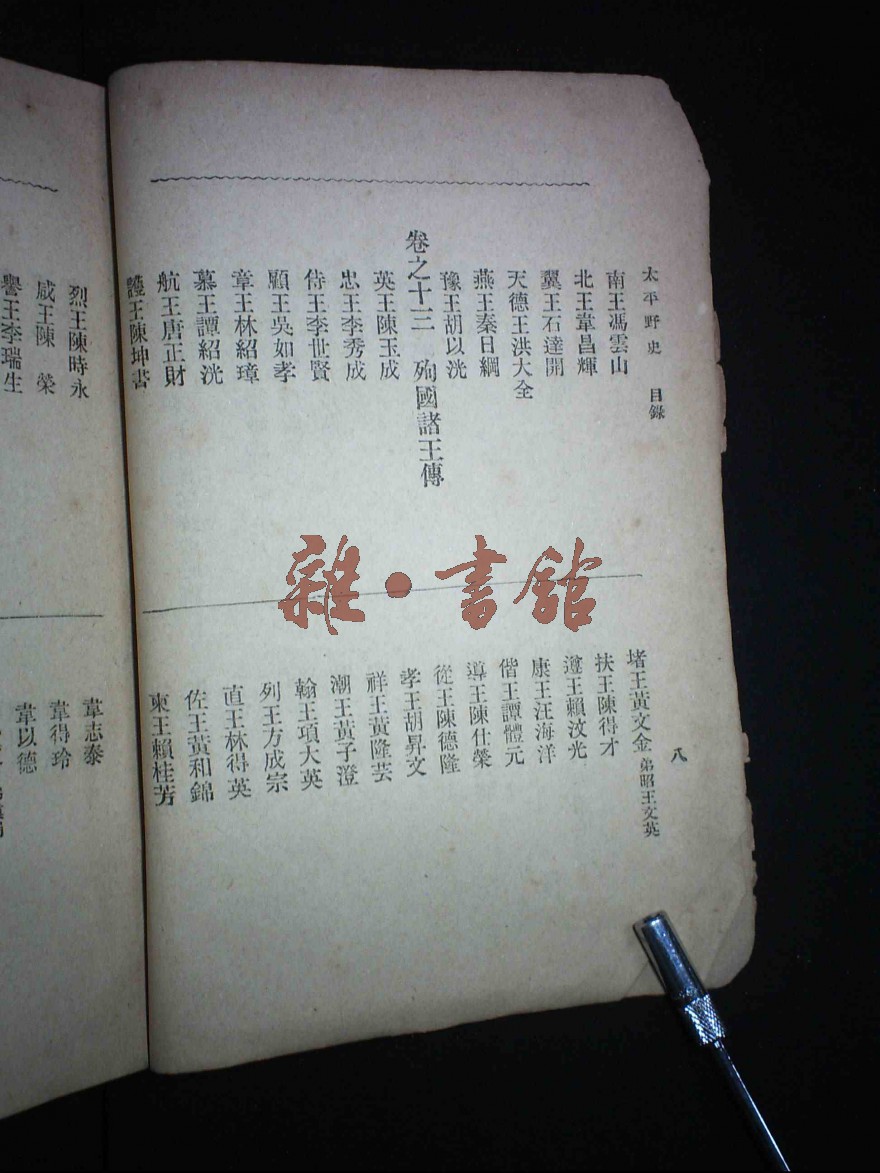 太平野史 目錄
八
南王馮雲山
北王韋昌輝
翼王石達開
天德王洪大全
燕王秦日綱
豫王胡以洸
卷之十三 殉國諸王傳
英王陳玉成
忠王李秀成
侍王李世賢
顧王吳如孝
章王林紹璋
慕王譚紹洸
航王唐正財
護王陳坤書
堵王黃文金 弟昭王文英
扶王陳得才
遵王賴汶光
康王汪海洋
偕王譚體元
導王陳仕榮
從王陳德隆
孝王胡昇文
祥王黃隆芸
潮王黃子澄
翰王項大英
列王方成宗
直王林得英
佐王黃和錦
東王賴桂芳
烈王陳時永
咸王陳 榮
譽王李瑞生
韋志泰
韋得玲
韋以德
雜·書館